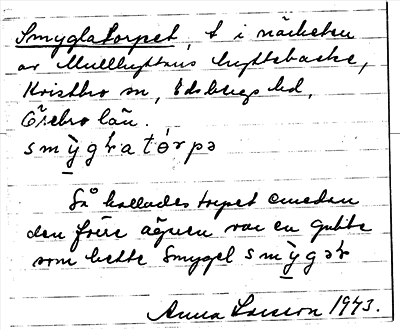 Smyglatorpet, t i närheten
av Mullhyttans hyttebacke,
Kvistbro sn, Edsbergs hd,
Örebro län.
smỳgɬatórpə
Så kallades torpet emedan
den förre ägaren var en gubbe
som hette Smygel smỳgəɬ
Anna Larsson 1943.